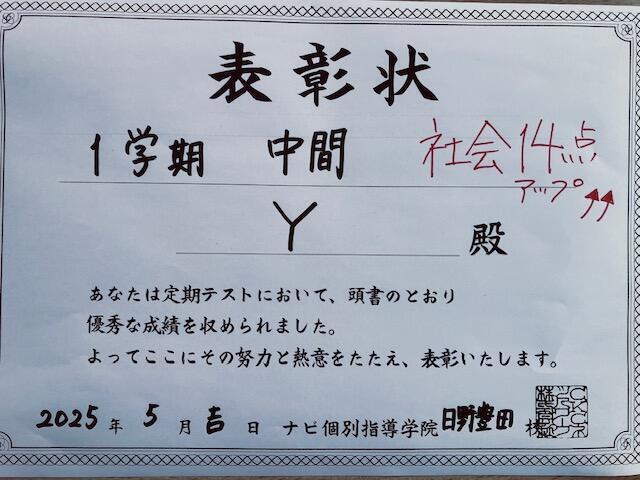 表彰状
1学期 中間 社会14点
アップ
Y 殿
あなたは定期テストにおいて、頭書のとおり
優秀な成績を収められました。
よってここにその努力と熱意をたたえ、表彰いたします。
2025年 5月吉日 ナビ個別指導学院 日野豊田 校